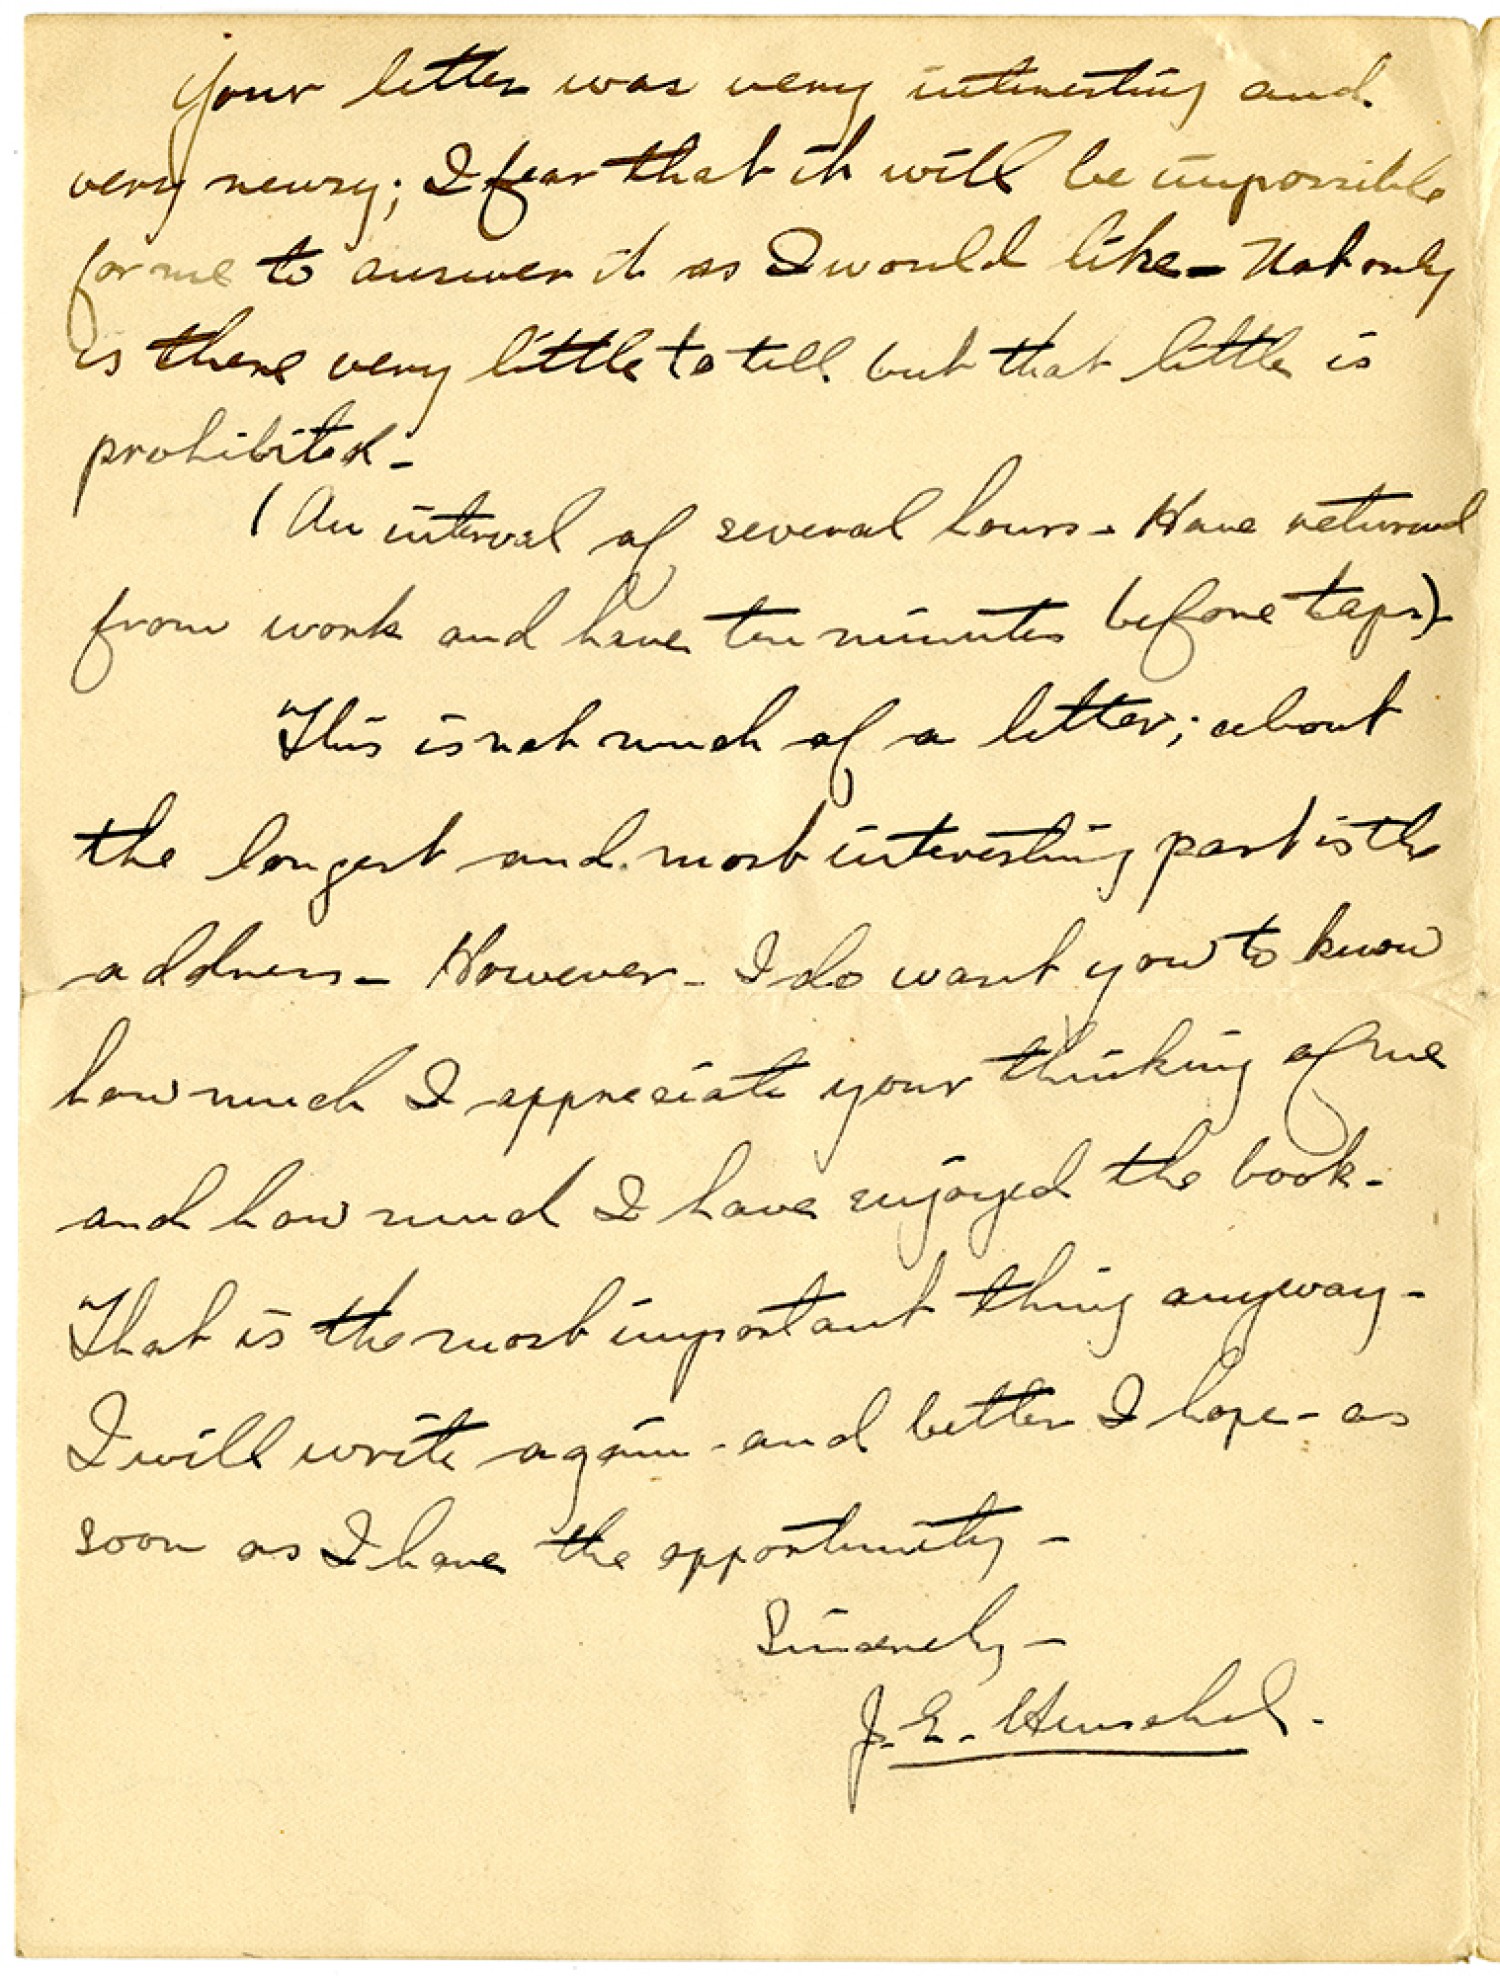 Your letter was very interesting and
very newsy; I fear that it will be impossible
for me to answer it as I would like - Not only
is there very little to tell but that little is
prohibited -
(An interval of several hours - Have returned
from work and have ten minutes before taps) -
This is not much of a letter; about
the longest and most interesting part is the
address - However - I do want you to know
how much I appreciate your thinking of me
and how much I have enjoyed the book -
That is the most important thing anyway -
I will write again - and better I hope - as
soon as I have the opportunity -
Sincerely -
J. E. Henschel.